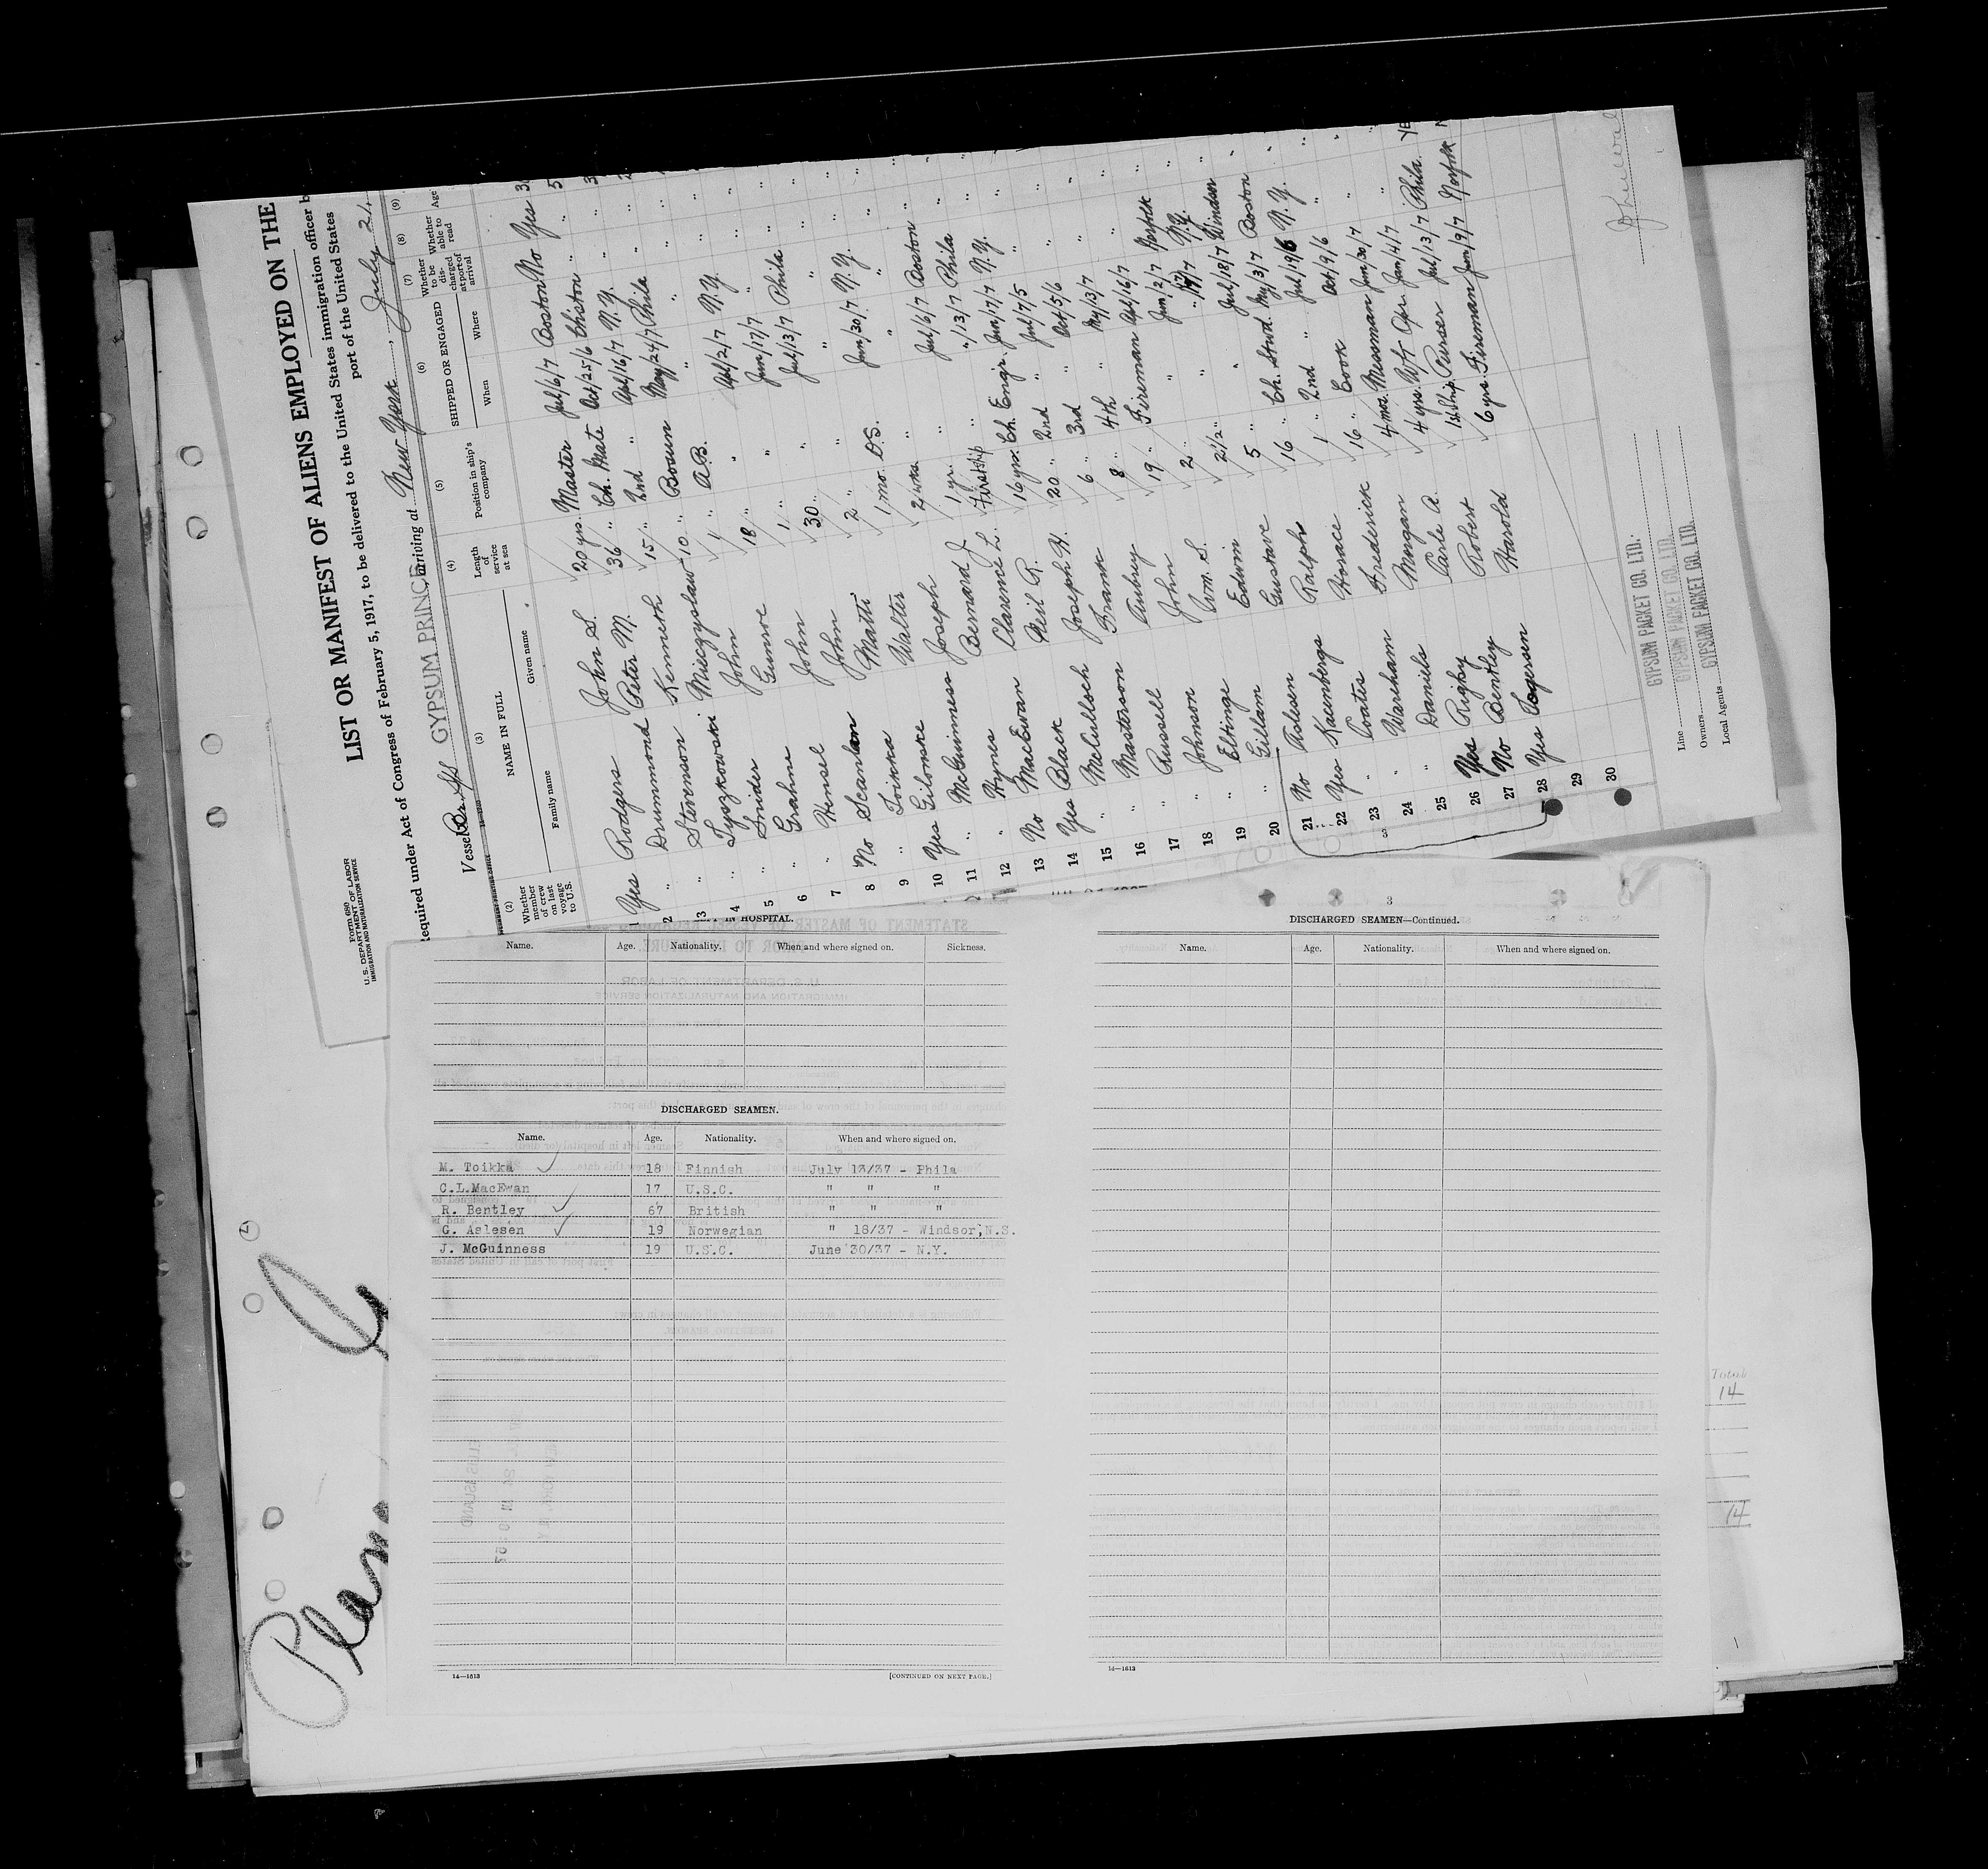 Form 680
U. S. DEPARTMENT OF LABOR
IMMIGRATION AND NATURALIZATION SERVICE
LIST OR MANIFEST OF ALIENS EMPLOYED ON THE
Required under Act of Congress of February 5, 1917, to be delivered to the United States immigration officer
port of the United States
Vessel Br. S/S GYPSUM PRINCE, arriving at New York, July 21,
(2) (3) (4) (5) (6) (7) (8) (9)
Whether member of crew on last voyage to U.S.
NAME IN FULL
Family name Given name
Length of service at sea
Position in ship's company
SHIPPED OR ENGAGED
When Where
Whether to be discharged at port of arrival
Whether able to read
Age
1 Yes Rodgers John S. 20 yrs. Master Jul/6/7 Boston No Yes
2 " Drummond Peter M. 36 " Ch. Mate Oct/25/6 " "
3 " Stevenson Kenneth 15 " 2nd " Apl/16/7 N.Y. "
4 " Tyszkowski Mieczyslaw 10 " Bosun May/24/7 Phila "
5 " Snider John 1 " A.B. " " "
6 " Grahne Gunnve 18 " " Apl/2/7 N.Y. "
7 " Hensel John 1 " " Jun/17/7 " "
8 No Scanlon John 30 " " Jul/13/7 Phila "
9 " Toikka Matti 2 " " " " "
10 Yes Gilomske Walter 1 mo. O.S. Jun/30/7 N.Y. "
11 " McGuinness Joseph 2 wks. " " " "
12 " Hynes Bernard J. 1 yr. " Jul/6/7 Boston "
13 No MacEwan Clarence L. First ship " " /13/7 Phila "
14 Yes Black Neil R. 16 yrs. Ch. Engr. Jun/17/7 N.Y. "
15 " McCulloch Joseph H. 20 " 2nd " Jul/7/5 " "
16 " Masterson Frank 6 " 3rd " Oct/5/6 " "
17 " Russell Aubrey 8 " 4th " My/13/7 " "
18 " Johnson John 19 " Fireman Apl/16/7 Norfolk "
19 " Eltinge Wm. S. 2 " " Jun/2/7 N.Y. "
20 " Gillam Edwin 2 1/2 " "
21 No Aslesen Gustave 5 " " Jul/18/7 Windsor "
22 Yes Kacenbergs Ralph 16 " Ch. Stwd. My/3/7 Boston "
23 " Coates Horace 1 " 2nd " Jul/19/6 N.Y. "
24 " Wareham Frederick 16 " Cook Oct/9/6 " "
25 " Daniels Morgan 4 mos. Messman Jun/30/7 " "
26 Yes Rigby Carle A. 4 yrs. W/T Opr. Jan/4/7 " "
27 No Bentley Robert 1st Ship Purser Jul/13/7 Phila. YE
28 Yes Togersen Harold 6 yrs. Fireman Jun/9/7 Norfolk
29
30
Line GYPSUM PACKET CO. LTD.
Owners GYPSUM PACKET CO. LTD.
Local Agents GYPSUM PACKET CO. LTD.
IN HOSPITAL.
Name. Age. Nationality. When and where signed on. Sickness.
DISCHARGED SEAMEN.
Name. Age. Nationality. When and where signed on.
M. Toikka 18 Finnish July 13/37 - Phila
C.L.MacEwan 17 U.S.C. " " "
R. Bentley 67 British " " "
G. Aslesen 19 Norwegian " 18/37 - Windsor,N.S.
J. McGuinness 19 U.S.C. June 30/37 - N.Y.
14—1513
[CONTINUED ON NEXT PAGE.]
DISCHARGED SEAMEN—Continued.
Name. Age. Nationality. When and where signed on.
14—1513
Total
14
14